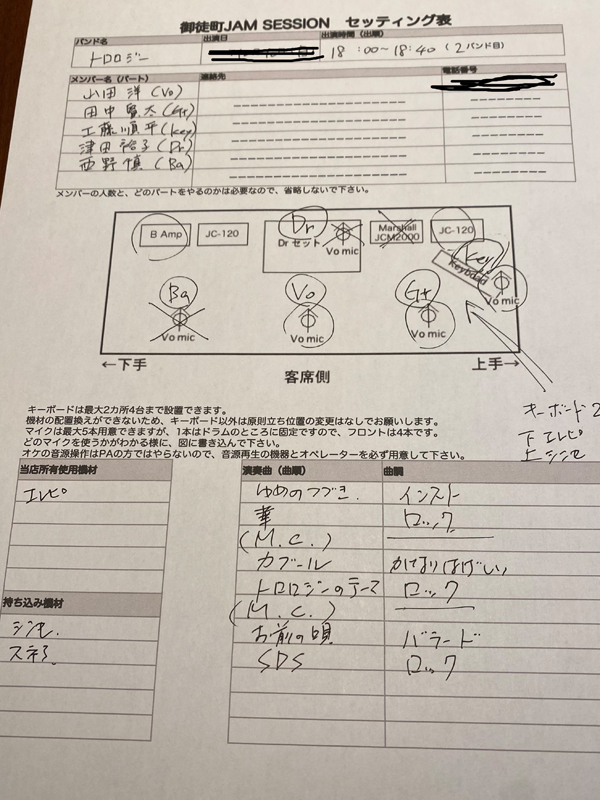 御徒町JAM SESSION セッティング表
バンド名 出演日 出演時間（出順）
トロロジー 18:00～18:40（2バンド目）
メンバー名（パート） 連絡先 電話番号
山田 洋（Vo）
田中 太（Gt）
工藤順平（key）
津田裕子（Dr）
西野 慎（Ba）
メンバーの人数と、どのパートをやるのかは必要なので、省略しないで下さい。
B Amp JC-120 Dr Dr セット Vo mic Marshall JCM2000 JC-120
Key Keyboad Vo mic
Ba Vo Gt
Vo mic Vo mic Vo mic
←下手 客席側 上手→
キーボード2
下 エレピ
上 シンセ
キーボードは最大2カ所4台まで設置できます。
機材の配置換えができないため、キーボード以外は原則立ち位置の変更はなしでお願いします。
マイクは最大5本用意できますが、1本はドラムのところに固定ですので、フロントは4本です。
どのマイクを使うかがわかる様に、図に書き込んで下さい。
オケの音源操作はPAの方ではやらないので、音源再生の機器とオペレーターを必ず用意して下さい。
当店所有使用機材
エレピ
持ち込み機材
シンセ
スネア
演奏曲（曲順） 曲調
ゆめのつづき インスト
華 ロック
(M.C.)
カブール かなりはげしい
トロロジンのテーマ ロック
(M.C.)
お前の頃 バラード
SDS ロック